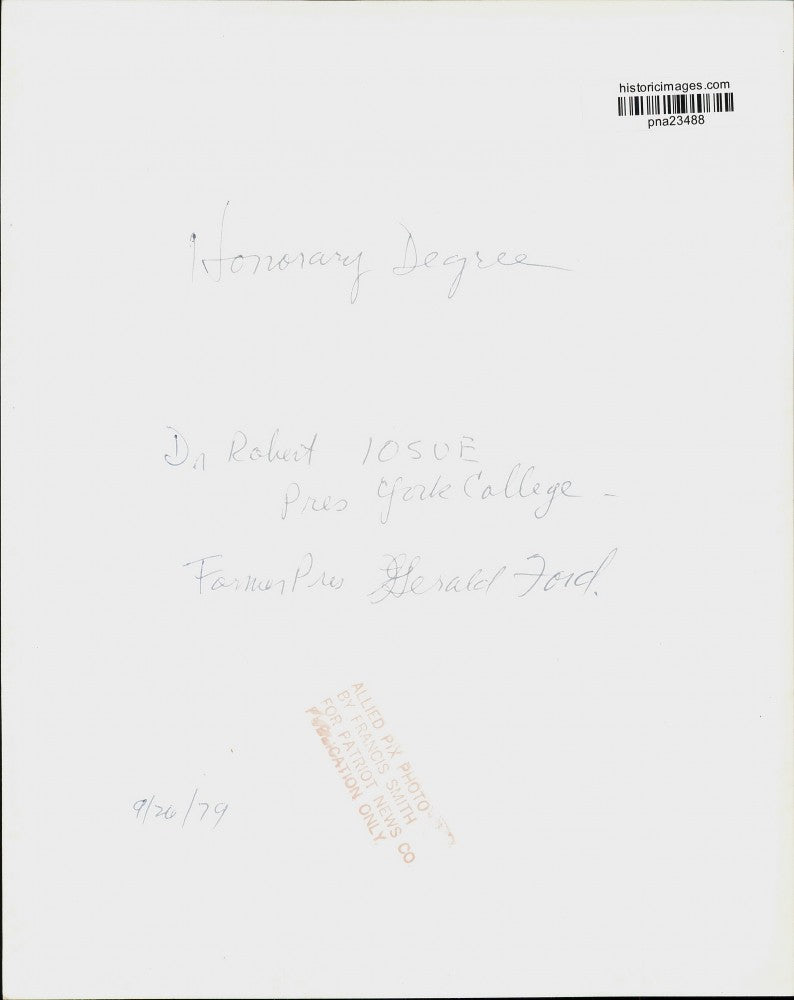 historicimages.com
pna23488
Honorary Degree
Dr Robert IOSUE
Pres York College -
Former Pres Gerald Ford.
ALLIED PIX PHOTO
BY FRANCIS SMITH
FOR PATRIOT NEWS CO
PUBLICATION ONLY
9/26/79